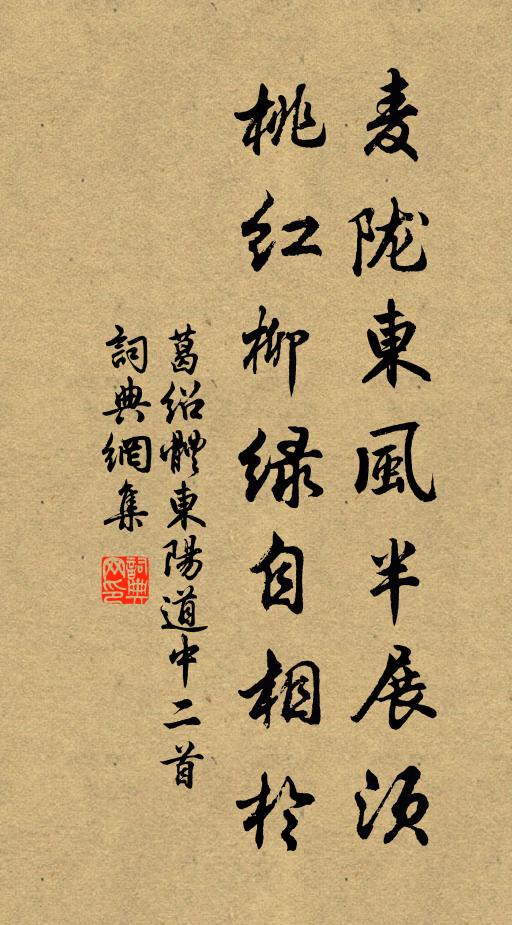 麦陇東風半展须
桃红柳绿自相於
葛绍體東陽道中二首
詞典網集
詞典網印